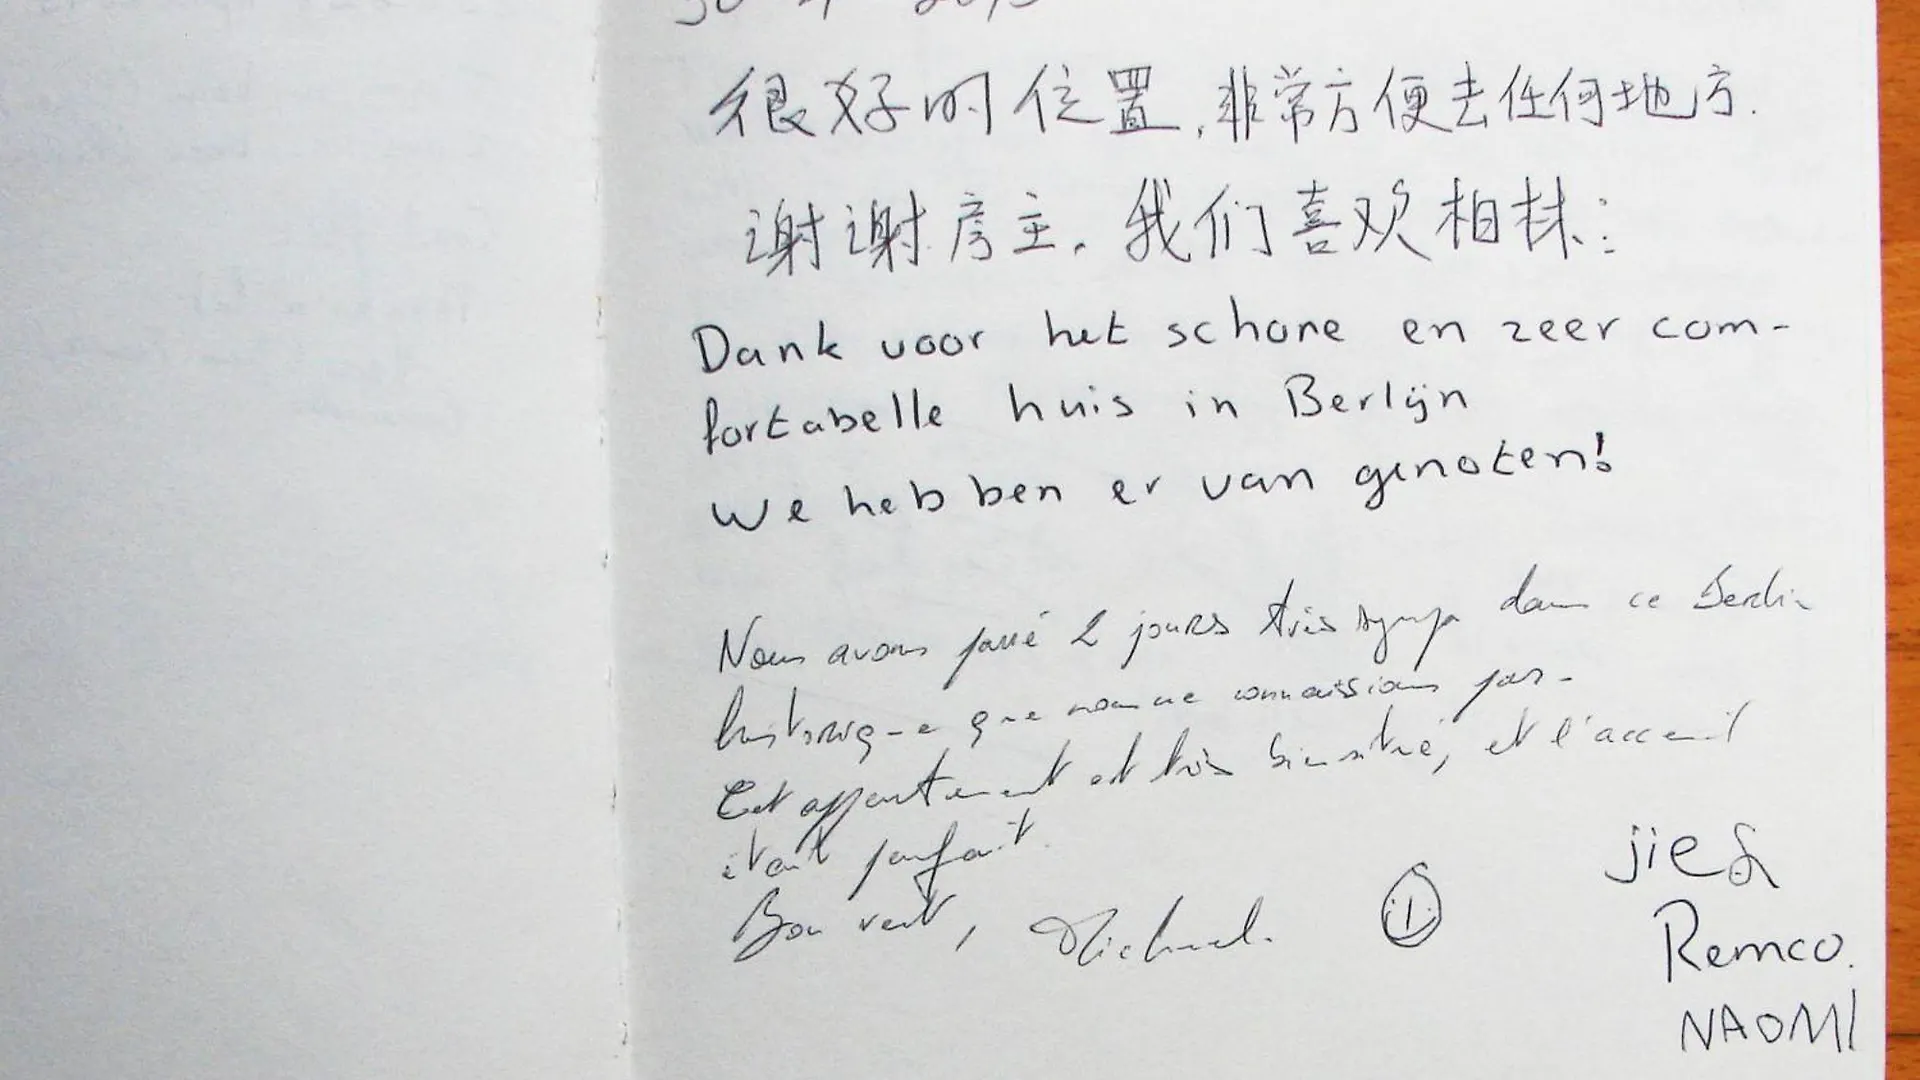 很好的位置,非常方便去任何地方.
谢谢房主.我们喜欢柏林:
Dank voor het schone en zeer com-
fortabelle huis in Berlijn
We hebben er van genoten!
Nous avons passé 2 jours très sympa dans ce Berlin
historique que nous ne connaissions pas-
Cet appartement est très bien situé, et l'accueil
était parfait.
Bon vent, Michael.
jie &
Remco.
NAOMI